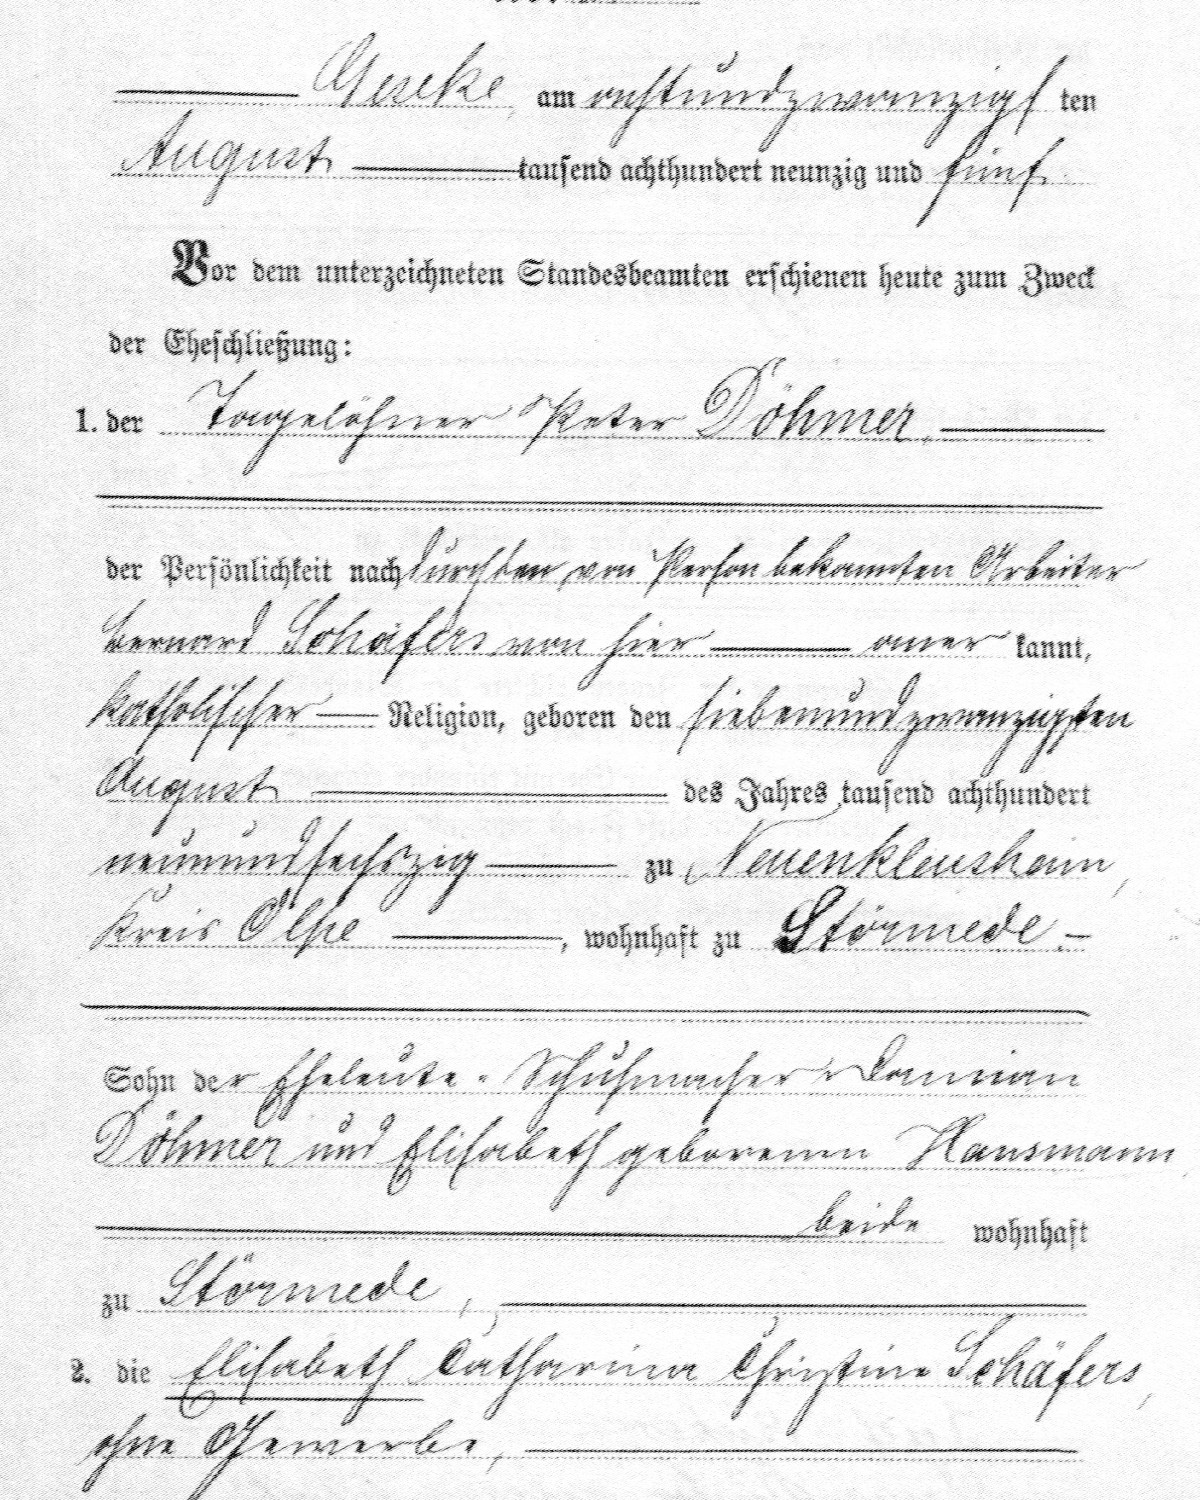 Geseke, am achtundzwanzigsten
August tausend achthundert neunzig und fünf.
Vor dem unterzeichneten Standesbeamten erschienen heute zum Zweck
der Eheschließung:
1. der Tagelöhner Peter Döhmer,
der Persönlichkeit nach durch den von Person bekannten Arbeiter
Bernard Schäfers von hier anerkannt,
katholischer Religion, geboren den siebenundzwanzigsten
August des Jahres tausend achthundert
neunundsechszig zu Neuenkleusheim,
Kreis Olpe, wohnhaft zu Störmede
Sohn der Eheleute Schuhmacher Damian
Döhmer und Elisabeth geborenen Hausmann
beide wohnhaft
zu Störmede,
2. die Elisabeth Catharina Christine Schäfers,
ohne Gewerbe,